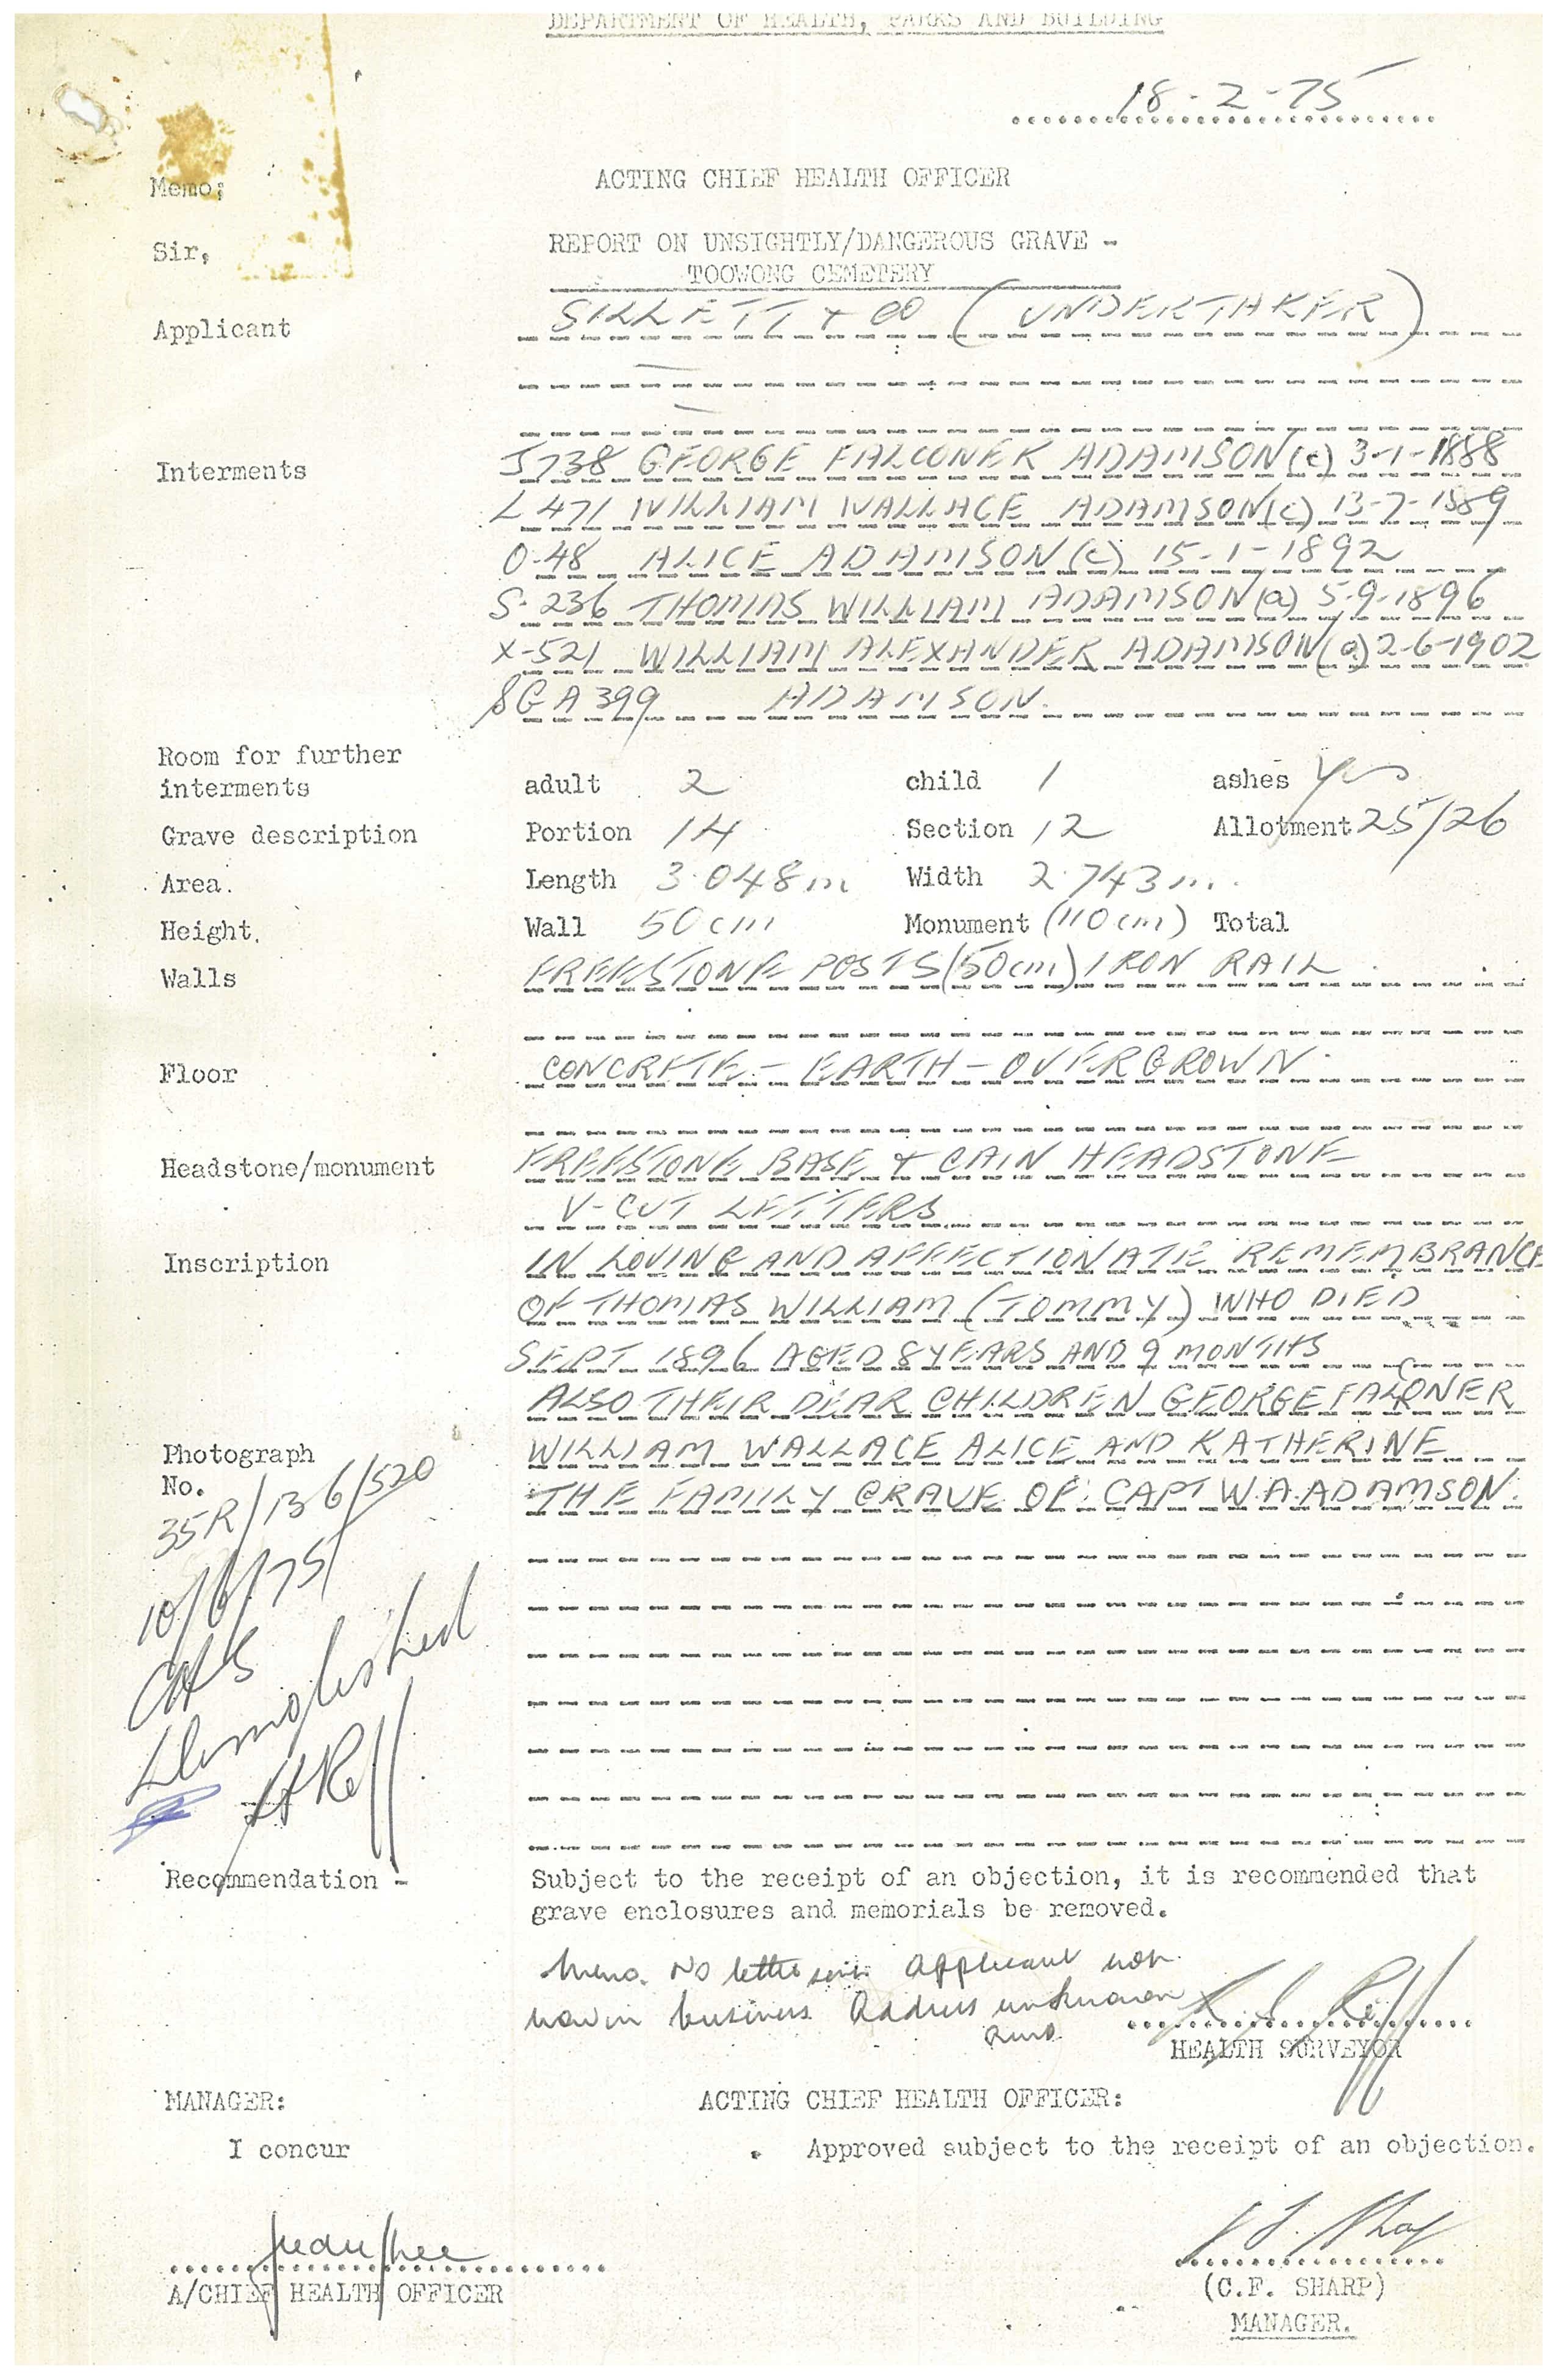 DEPARTMENT OF HEALTH, PARKS AND BUILDING
18-2-75
ACTING CHIEF HEALTH OFFICER
Memo;
Sir,
REPORT ON UNSIGHTLY/DANGEROUS GRAVE -
TOOWONG CEMETERY
Applicant SILLETT + CO (UNDERTAKER)
Interments J738 GEORGE FALCONER ADAMSON (c) 3-1-1888
L 471 WILLIAM WALLACE ADAMSON (c) 13-7-1889
O-48 ALICE ADAMSON (c) 15-1-1892
S-236 THOMAS WILLIAM ADAMSON (a) 5-9-1896
X-521 WILLIAM ALEXANDER ADAMSON (a) 2-6-1902
SGA399 ADAMSON.
Room for further
interments adult 2 child 1 ashes Yes
Grave description Portion 14 Section 12 Allotment 25/26
Area. Length 3.048m Width 2.743m.
Height. Wall 50cm Monument (110cm) Total
Walls FREESTONE POSTS (50cm) IRON RAIL
Floor CONCRETE - EARTH - OVERGROWN.
Headstone/monument FREESTONE BASE + CAIN HEADSTONE
V-CUT LETTERS
Inscription IN LOVING AND AFFECTIONATE REMEMBRANCE
OF THOMAS WILLIAM (TOMMY) WHO DIED
SEPT 1896 AGED 8 YEARS AND 9 MONTHS
ALSO THEIR DEAR CHILDREN GEORGE FALCONER
Photograph WILLIAM WALLACE ALICE AND KATHERINE
No. THE FAMILY GRAVE OF CAPT W.A. ADAMSON.
35R/136/520
10/6/75
Demolished
Recommendation - Subject to the receipt of an objection, it is recommended that
grave enclosures and memorials be removed.
Memo. No letter sent Applicant not
now in business Address unknown
HEALTH SURVEYOR
MANAGER: ACTING CHIEF HEALTH OFFICER:
I concur Approved subject to the receipt of an objection.
A/CHIEF HEALTH OFFICER (C.F. SHARP)
MANAGER.